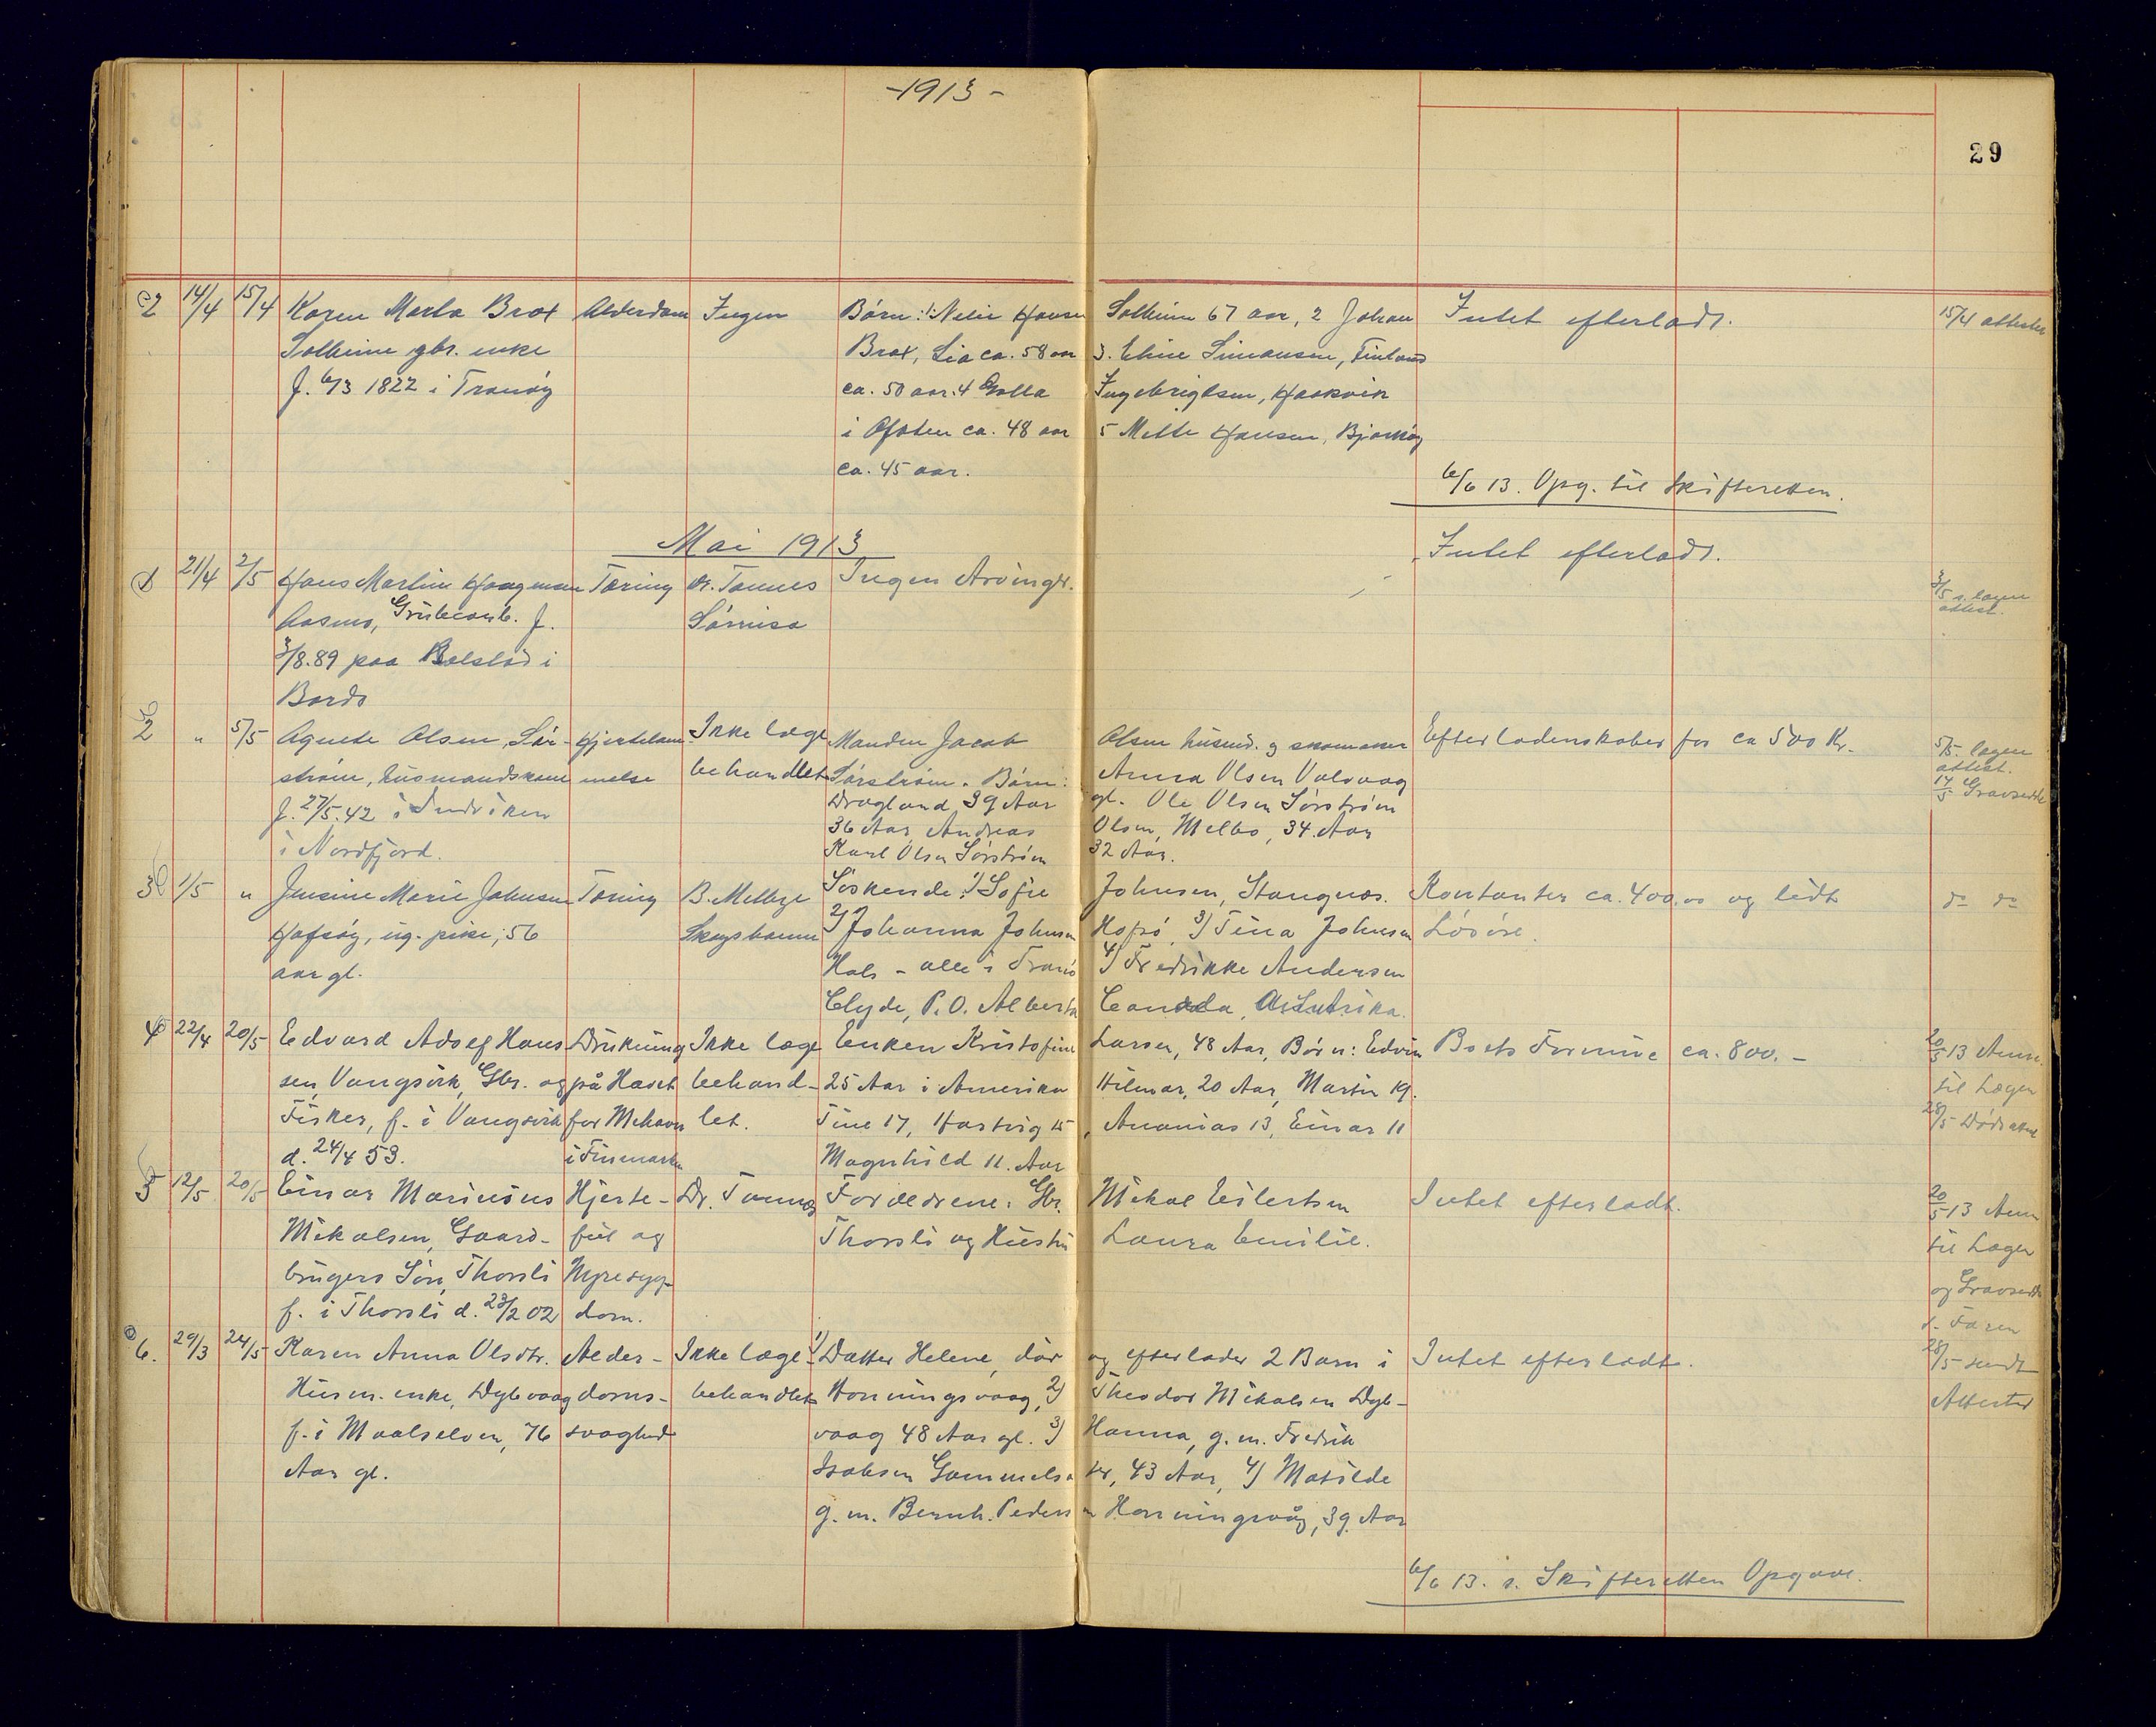 -1913-
29
2 14/4 15/4 Karen Marta Brox Alderdom Ingen Børn: 1. Nelie Hansen Solheim 67 aar, 2 Johan Intet efterladt. 15/4 attester
Solheim gbr. enke Brox, Lia ca. 58 aar 3. Eline Simonsen, Finland
f. 6/3 1822 i Tranöy ca. 50 aar. 4 Golla Ingebrigtsen, Haakvik
i Ofoten ca. 48 aar 5 Mette Hansen, Bjarköy
ca. 45 aar.
6/6 13. Opg. til Skifteretten.
Mai 1913
Intet efterladt.
1 21/4 2/5 Hans Martin Haagensen Tæring Dr. Tannes Ingen Arvinger.
Aasmo, Grubearb. f. Sörreisa
3/8.89 paa Bolstad i
Bardo
3/5 s. lægen
attest.
2 " 5/5 Agnete Olsen, Sör- Hjertelam- Ikke læge Manden Jacob Olsen husmd. og skomaker Efterladenskaber for ca 500 Kr.
ström, husmandskone melse behandlet Sörström. Börn: Anna Olsen Valvaag
f. 27/5.42 i Indviken Dragland 39 Aar gl. Ole Olsen Sörström
i Nordfjord. 36 Aar, Andreas Olsen, Melbo, 34 Aar
Karl Olsen Sörström 32 Aar.
5/5. lægen
attest.
14/5 Gravseddel
3 1/5 " Jensine Marie Johnsen Tæring B. Melbye Söskende: 1) Sofie Johnsen, Stangnes. Kontanter ca. 400.00 og lidt do do
Hofsöy, ug. pike, 56 Skogshavn 2) Johanna Johnsen Hofsö, 3) Tina Johnsen Lösöre.
aar gl. Hals - alle i Tranö 4) Fredrikke Andersen
Clyde, P.O. Alberta Canada, Amerika.
4 22/4 20/5 Edvard Adolf Han- Drukning Ikke læge Enken Kristofine Larsen, 48 Aar, Börn: Edvin Boets Formue ca. 800.-
sen, Vangsvik, Gbr. og på Havet behand- 25 Aar i Amerika Hilmar, 20 Aar, Martin 19.
Fisker, f. i Vangsvik for Mehavn let. Tine 17, Hartvig 15, Ananias 13, Einar 11
d. 24/4 53. i Finmarken Magnhild 11. Aar
20/5 13 Anm.
til Lægen
28/5 Dödsattest
5 12/5 20/5 Einar Marinius Hjerte- Dr. Tannes Forældrene: Gbr. Mikal Eilertsen Intet efterladt.
Mikalsen, Gaard- feil og Thorsli og Hustru Laura Emilie.
brugers Sön, Thorsli Nyresyg-
f. i Thorsli d. 23/2 02 dom.
20/5 13 Anm
til Lægen
og Gravseddel
Faren
6. 29/3 24/5 Karen Anna Olsdtr. Alder- Ikke læge- 1) Datter Helene, död og efterlader 2 Barn i Intet efterladt.
Husm. enke, Dybvaag doms- behandlet Honningsvaag, 2) Theodor Mikalsen Dyb-
f. i Maalselven, 76 svaghed vaag 48 Aar gl. 3) Hanna, g. m. Fredrik
Aar gl. Isaksen Gammelsæter, 43 Aar, 4) Matilde
g. m. Bernh. Pedersen Honningsvåg, 39 Aar
28/5 sendt
Attester
6/6 13. s. Skifteretten Opgave.